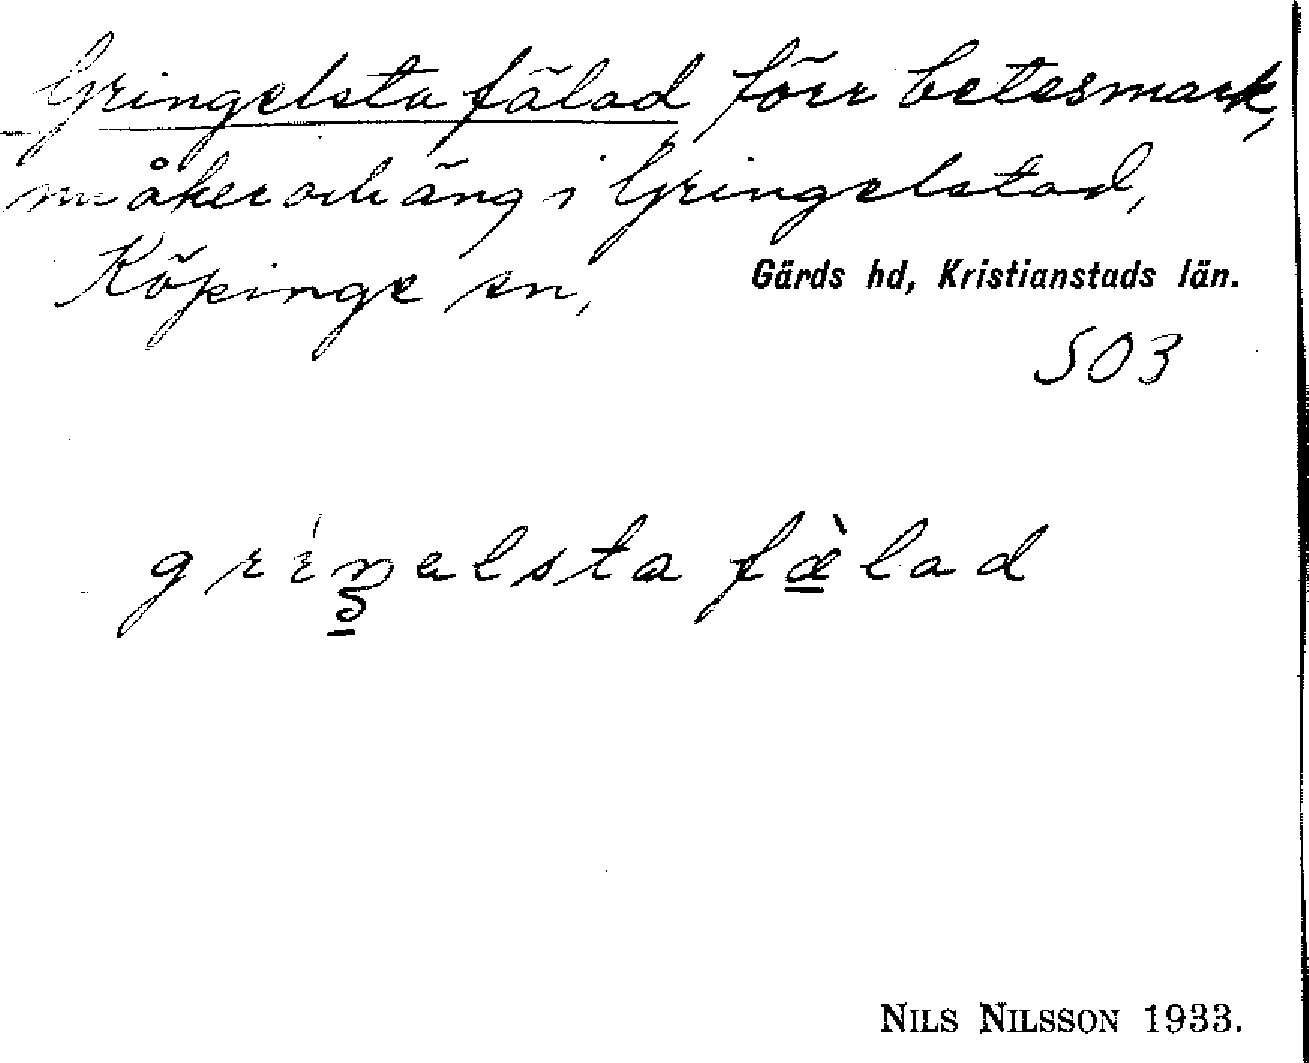 Gringelsta fälad förr betesmark,
nu åker och äng i Gringelstad,
Köpinge sn, Gärds hd, Kristianstads län.
503
gríŋəlsta fæ̀lad
NILS NILSSON 1933.